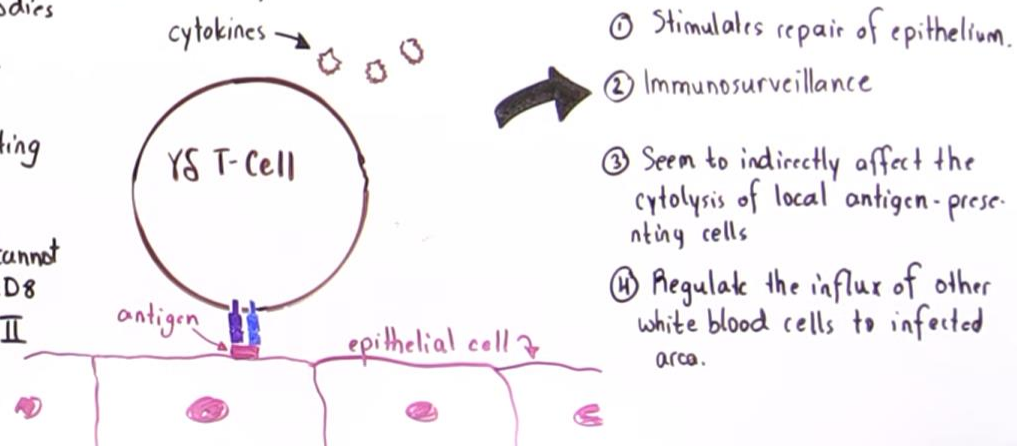 odies
ting
cannot
D8
II
cytokines
γδ T-Cell
antigen
epithelial cell
① Stimulates repair of epithelium.
② Immunosurveillance
③ Seem to indirectly affect the
cytolysis of local antigen-prese-
nting cells
④ Regulate the influx of other
white blood cells to infected
area.